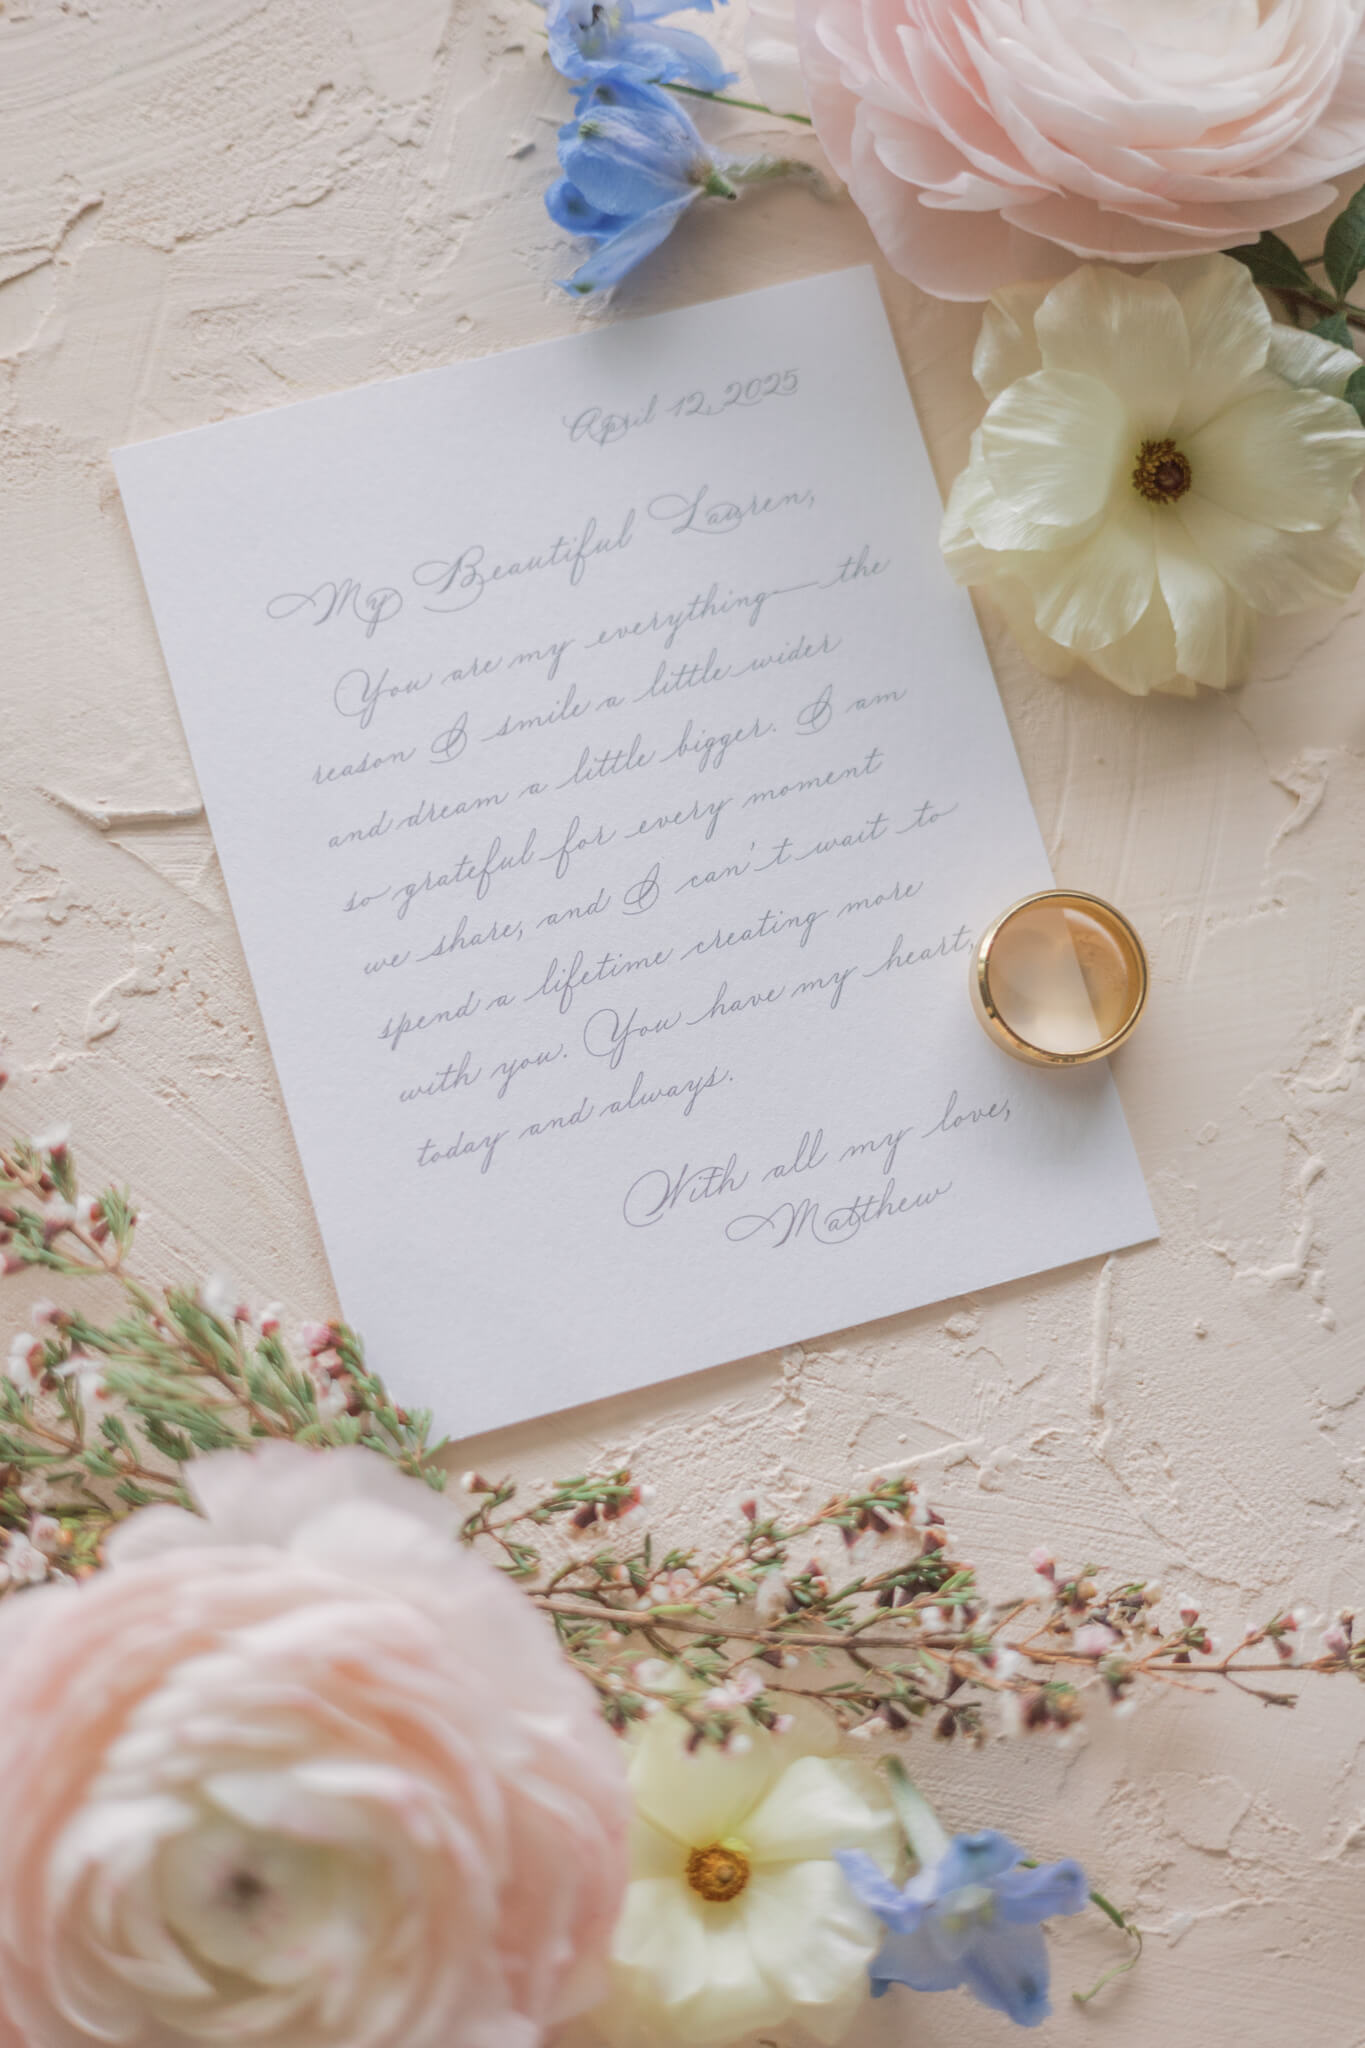 April 12, 2025
My Beautiful Lauren,
You are my everything—the
reason I smile a little wider
and dream a little bigger. I am
so grateful for every moment
we share, and I can't wait to
spend a lifetime creating more
with you. You have my heart,
today and always.
With all my love,
Matthew